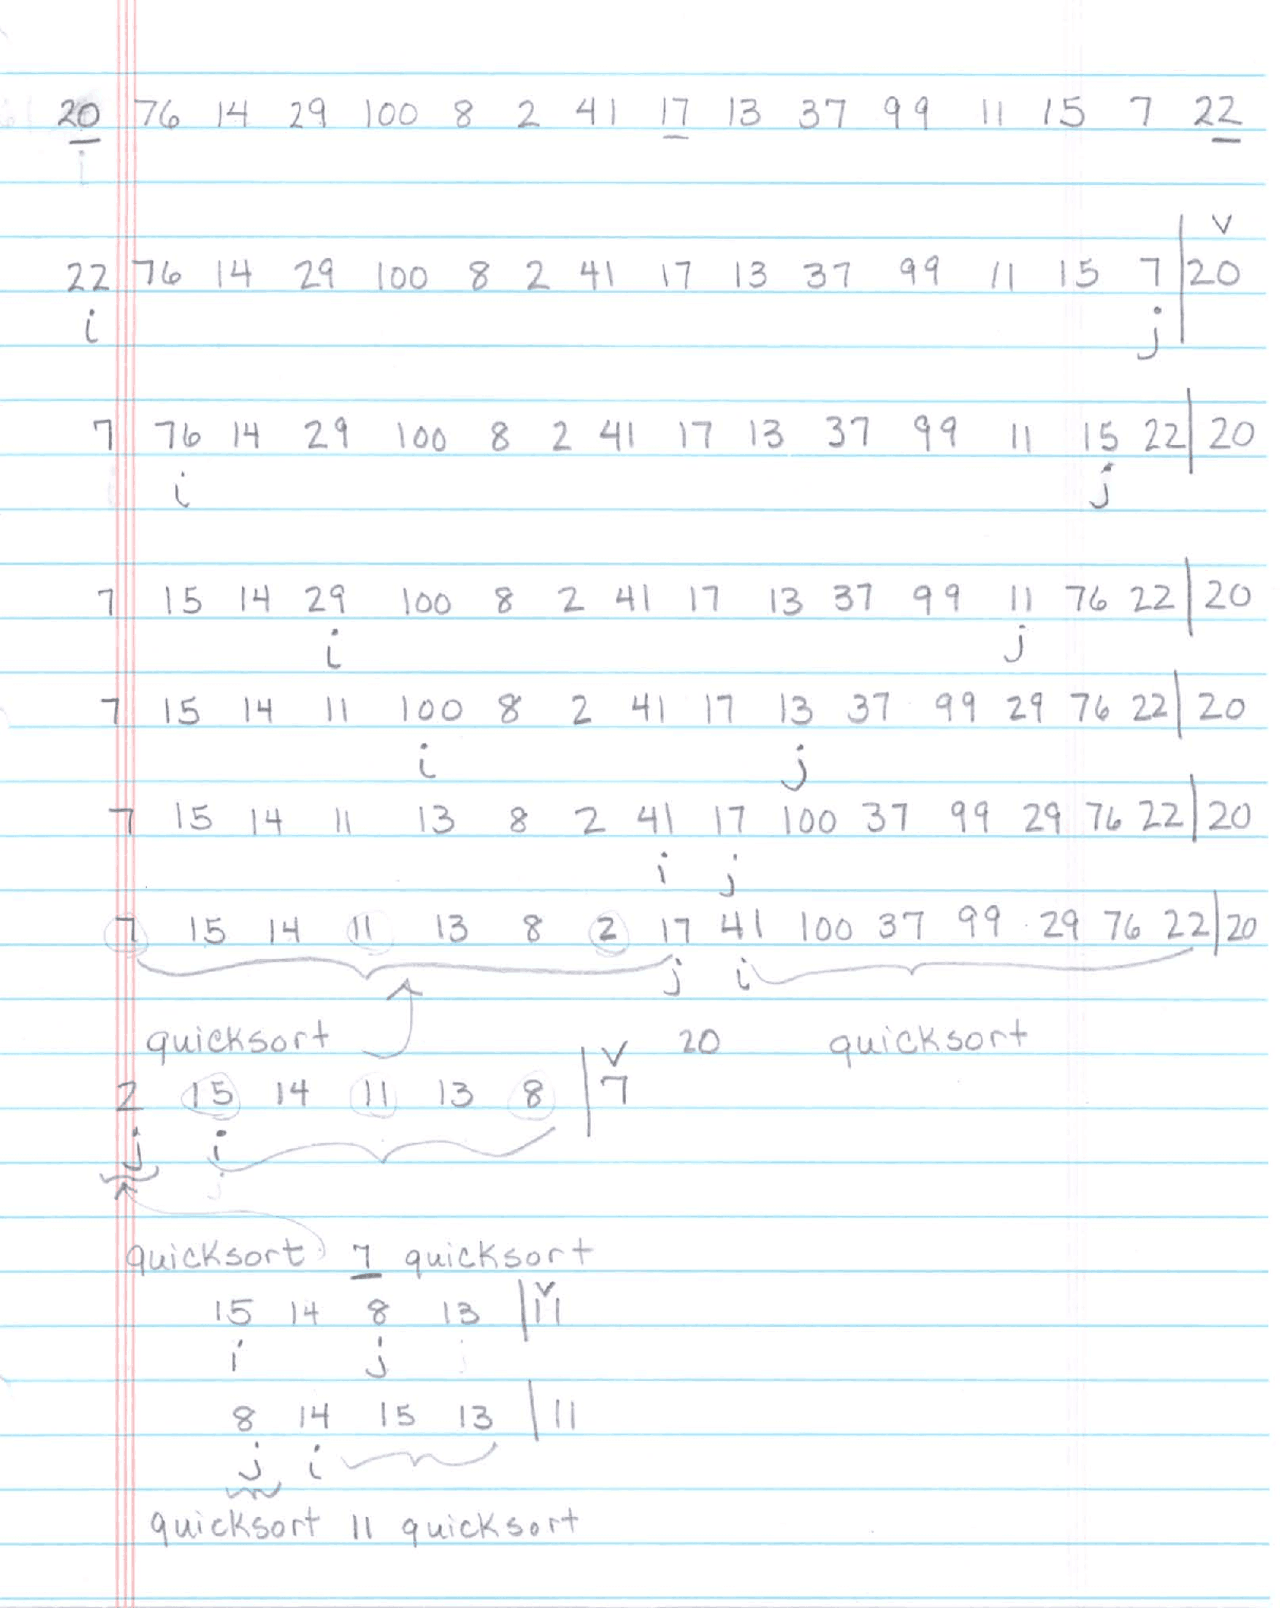 20 76 14 29 100 8 2 41 17 13 37 99 11 15 7 22
i
v
22 76 14 29 100 8 2 41 17 13 37 99 11 15 7 | 20
i j
7 76 14 29 100 8 2 41 17 13 37 99 11 15 22 | 20
i j
7 15 14 29 100 8 2 41 17 13 37 99 11 76 22 | 20
i j
7 15 14 11 100 8 2 41 17 13 37 99 29 76 22 | 20
i j
7 15 14 11 13 8 2 41 17 100 37 99 29 76 22 | 20
i j
7 15 14 11 13 8 2 17 41 100 37 99 29 76 22 | 20
j i
quicksort 20 quicksort
v
2 15 14 11 13 8 | 7
j i
j
quicksort 7 quicksort
v
15 14 8 13 | 11
i j
8 14 15 13 | 11
j i
quicksort 11 quicksort